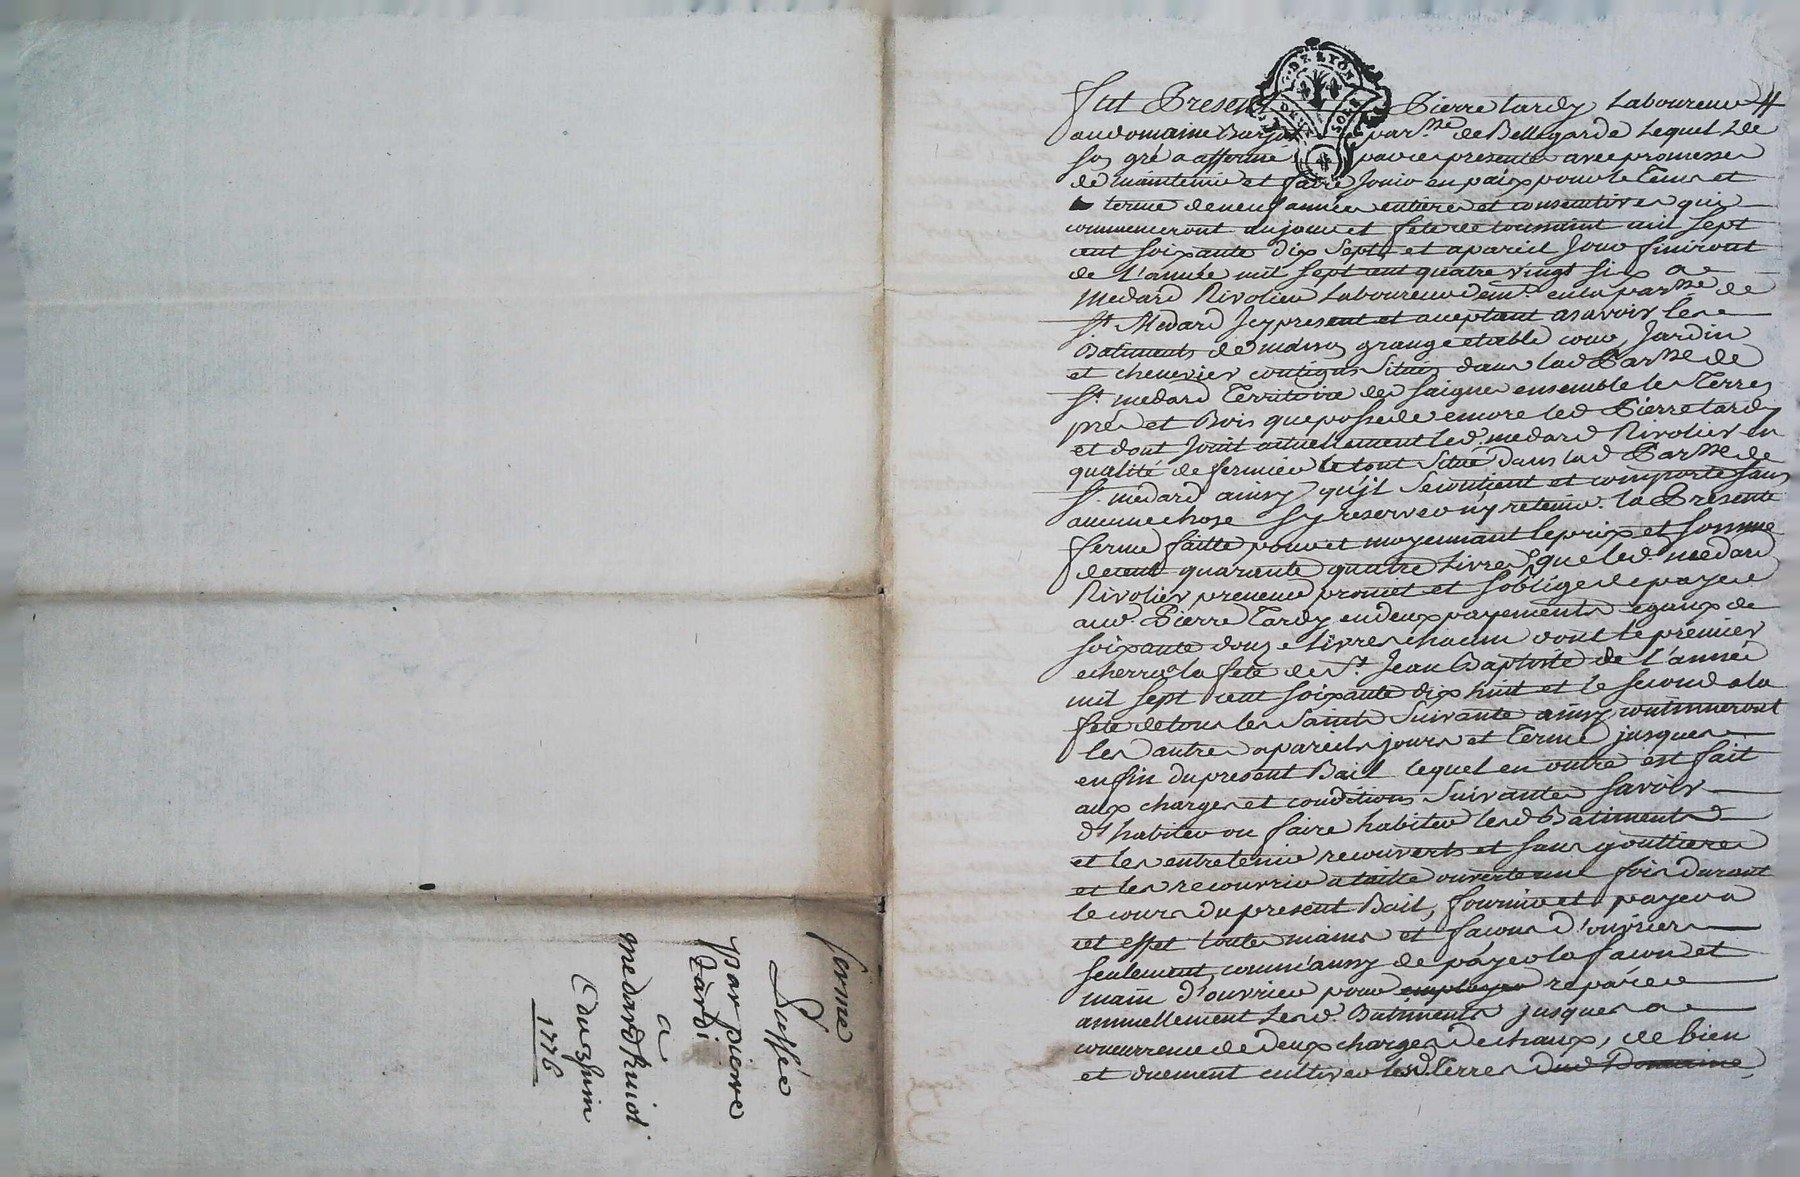 ferme
passée
par pierre
Tardi
a
medard Riuol
Du 3 juin
1776
DE LYON
Fut Present Pierre tardy Laboureur
au domaine Barjot parsse de Bellegarde Lequel de
son gré a affermé par ces presentes avec promesse
de maintenir et faire Jouir en paix pour le Tems et
terme de neuf années entieres et consecutives qui
commenceront au jour et fete de toussaint mil sept
cent soixante dix sept et a pareil Jour finiront
de l'année mil sept cent quatre vingt six a
Medard Rivolier Laboureur demt. en la parsse de
St. Medard Icy present et aceptant asavoir les
Batiments de maison grange etable cour, Jardin
et chenevier contigus Situés dans lad Parsse de
St. medard Territoire des saignes ensemble les Terres
prés et Bois que possede encore led Pierre tardy
et dont Jouit actuellement led. medard Rivolier en
qualité de fermier le tout Situé dans lad Parsse de
St. medard ainsy qu'jl se contient et comporte sans
aucune chose sy reserver n'y retenir. la Presente
ferme faitte pour et moyennant le prix et somme
de cent quarante quatre Livres que led. medard
Rivolier preneur promet et s'oblige de payer
aud. Pierre Tardy en deux payements egaux de
soixante douze livres chacun dont le premier
echerra a la fete de St. Jean Baptiste de l'année
mil sept cent soixante dix huit et le second a la
fete de tous les Saints Suivante ainsy continueront
les autres a pareils jours et terme jusques
en fin du present Bail lequel en outre est fait
aux charges et conditions Suivantes savoir
d'habiter ou faire habiter lesd Batiments
et les entretenir recouverts et sans gouttieres
et les recouvrir a taille ouverte une fois durant
le cours du present Bail, fournir et payer a
cet effet toute mains et façons d'ouvriers
seulement, comm'aussy de payer la façon et
main d'ouvrier pour employer reparer
annuellement lesd. Batiments jusques a
concurrence de deux charges de chaux, de bien
et duement cultiver lesd Terres dud Domaine,